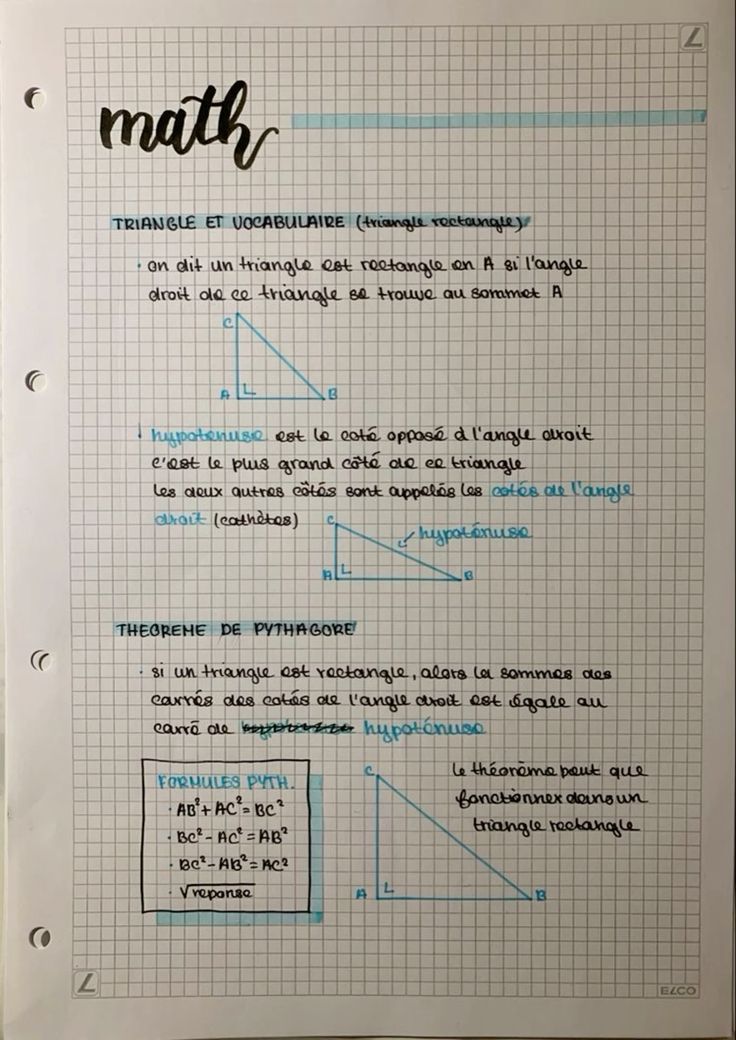 math
TRIANGLE ET VOCABULAIRE (triangle rectangle)
· on dit un triangle est rectangle en A si l'angle
droit de ce triangle se trouve au sommet A
C
A B
hypotenuse est le coté opposé à l'angle droit
c'est le plus grand côté de ce triangle
les deux autres côtés sont appelés les cotés de l'angle
droit (cathètes)
C
hypoténuse
A B
THEOREME DE PYTHAGORE
· si un triangle est rectangle, alors la sommes des
carrés des cotés de l'angle droit est égale au
carré de hypoténuse
FORMULES PYTH.
· AB² + AC² = BC²
· BC² - AC² = AB²
· BC² - AB² = AC²
· √reponse
C
A B
le théorème peut que
fonctionner dans un
triangle rectangle
ELCO